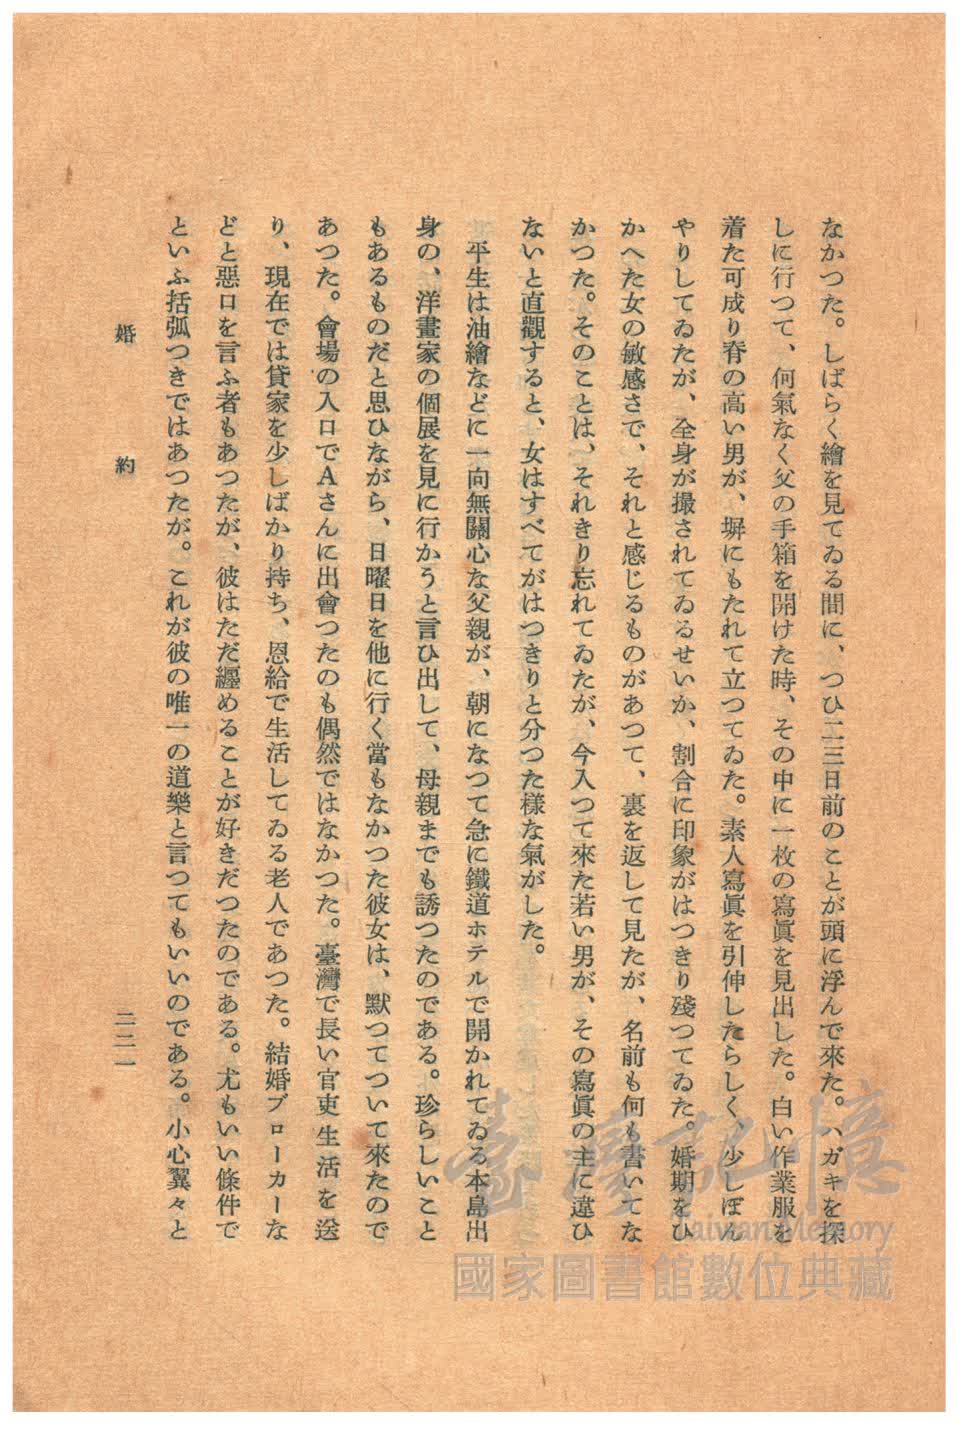 なかつた。しばらく繪を見てゐる間に、つひ二三日前のことが頭に浮んで來た。ハガキを探
しに行つて、何氣なく父の手箱を開けた時、その中に一枚の寫眞を見出した。白い作業服を
着た可成り脊の高い男が、塀にもたれて立つてゐた。素人寫眞を引伸したらしく、少しぼん
やりしてゐたが、全身が撮されてゐるせいか、割合に印象がはつきり殘つてゐた。婚期をひ
かへた女の敏感さで、それと感じるものがあつて、裏を返して見たが、名前も何も書いてな
かつた。そのことは、それきり忘れてゐたが、今入つて來た若い男が、その寫眞の主に違ひ
ないと直觀すると、女はすべてがはつきりと分つた樣な氣がした。
平生は油繪などに一向無關心な父親が、朝になつて急に鐵道ホテルで開かれてゐる本島出
身の、洋畫家の個展を見に行かうと言ひ出して、母親までも誘つたのである。珍らしいこと
もあるものだと思ひながら、日曜日を他に行く當もなかつた彼女は、默つてついて來たので
あつた。會場の入口でAさんに出會つたのも偶然ではなかつた。臺灣で長い官吏生活を送
り、現在では貸家を少しばかり持ち、恩給で生活してゐる老人であつた。結婚ブローカーな
どと惡口を言ふ者もあつたが、彼はただ纒めることが好きだつたのである。尤もいい條件で
といふ括弧つきではあつたが。これが彼の唯一の道樂と言つてもいいのである。小心翼々と
婚約
二二一
臺灣記憶
Taiwan Memory
國家圖書館數位典藏